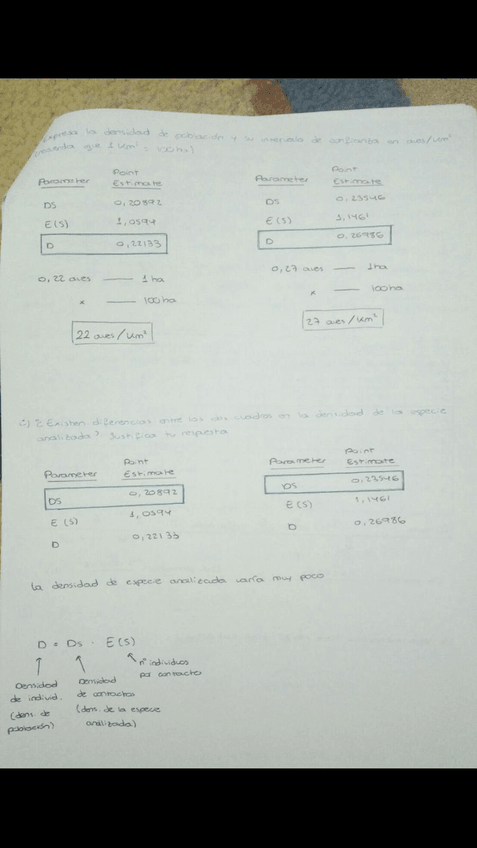 Expresa la densidad de población y su intervalo de confianza en aves/Km²
que 1 Km² = 100 ha)
Parameter Point Estimate
DS 0,20892
E(S) 1,0594
D 0,22133
0,22 aves —— 1 ha
x —— 100 ha
22 aves/Km²
Parameter Point Estimate
DS 0,23546
E(S) 1,1461
D 0,26986
0,27 aves —— 1 ha
x —— 100 ha
27 aves/Km²
¿Existen diferencias entre los dos cuadros en la densidad de la especie
analizada? Justificar tu respuesta
Parameter Point Estimate
DS 0,20892
E(S) 1,0594
D 0,22133
Parameter Point Estimate
DS 0,23546
E(S) 1,1461
D 0,26986
La densidad de especie analizada varía muy poco
D = Ds · E(S)
Densidad
de individ.
(dens. de
población)
Densidad
de contactos
(dens. de la especie
analizada)
nº individuos
por contacto